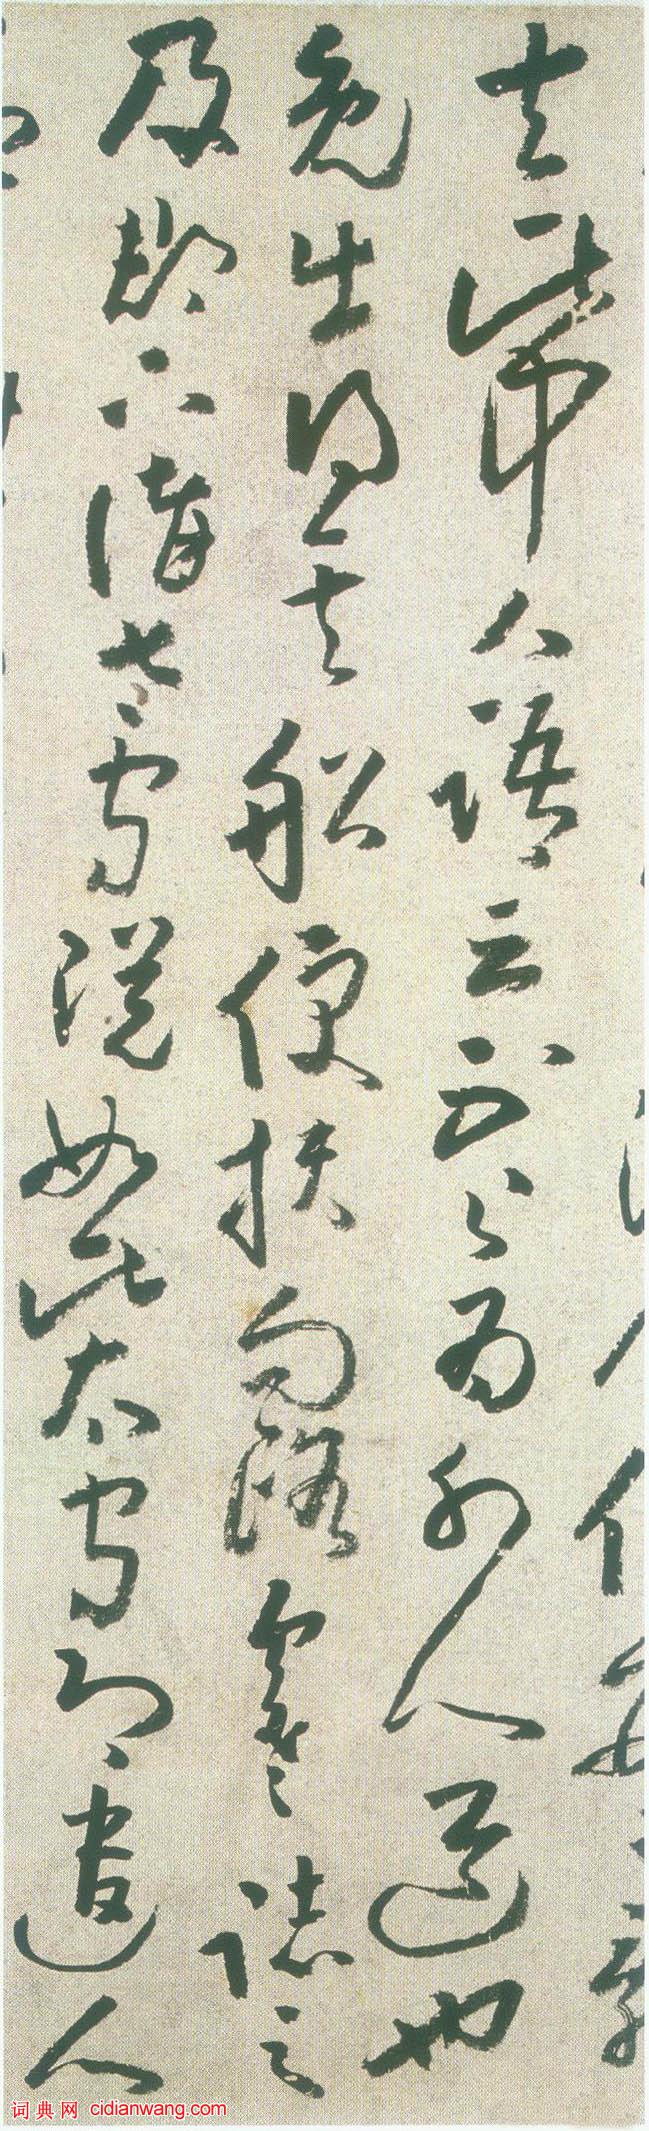 去此中人語云不足為外人道也
既出得其船便扶向路處處誌之
及郡下詣太守說如此太守即遣人
词典网 cidianwang.com